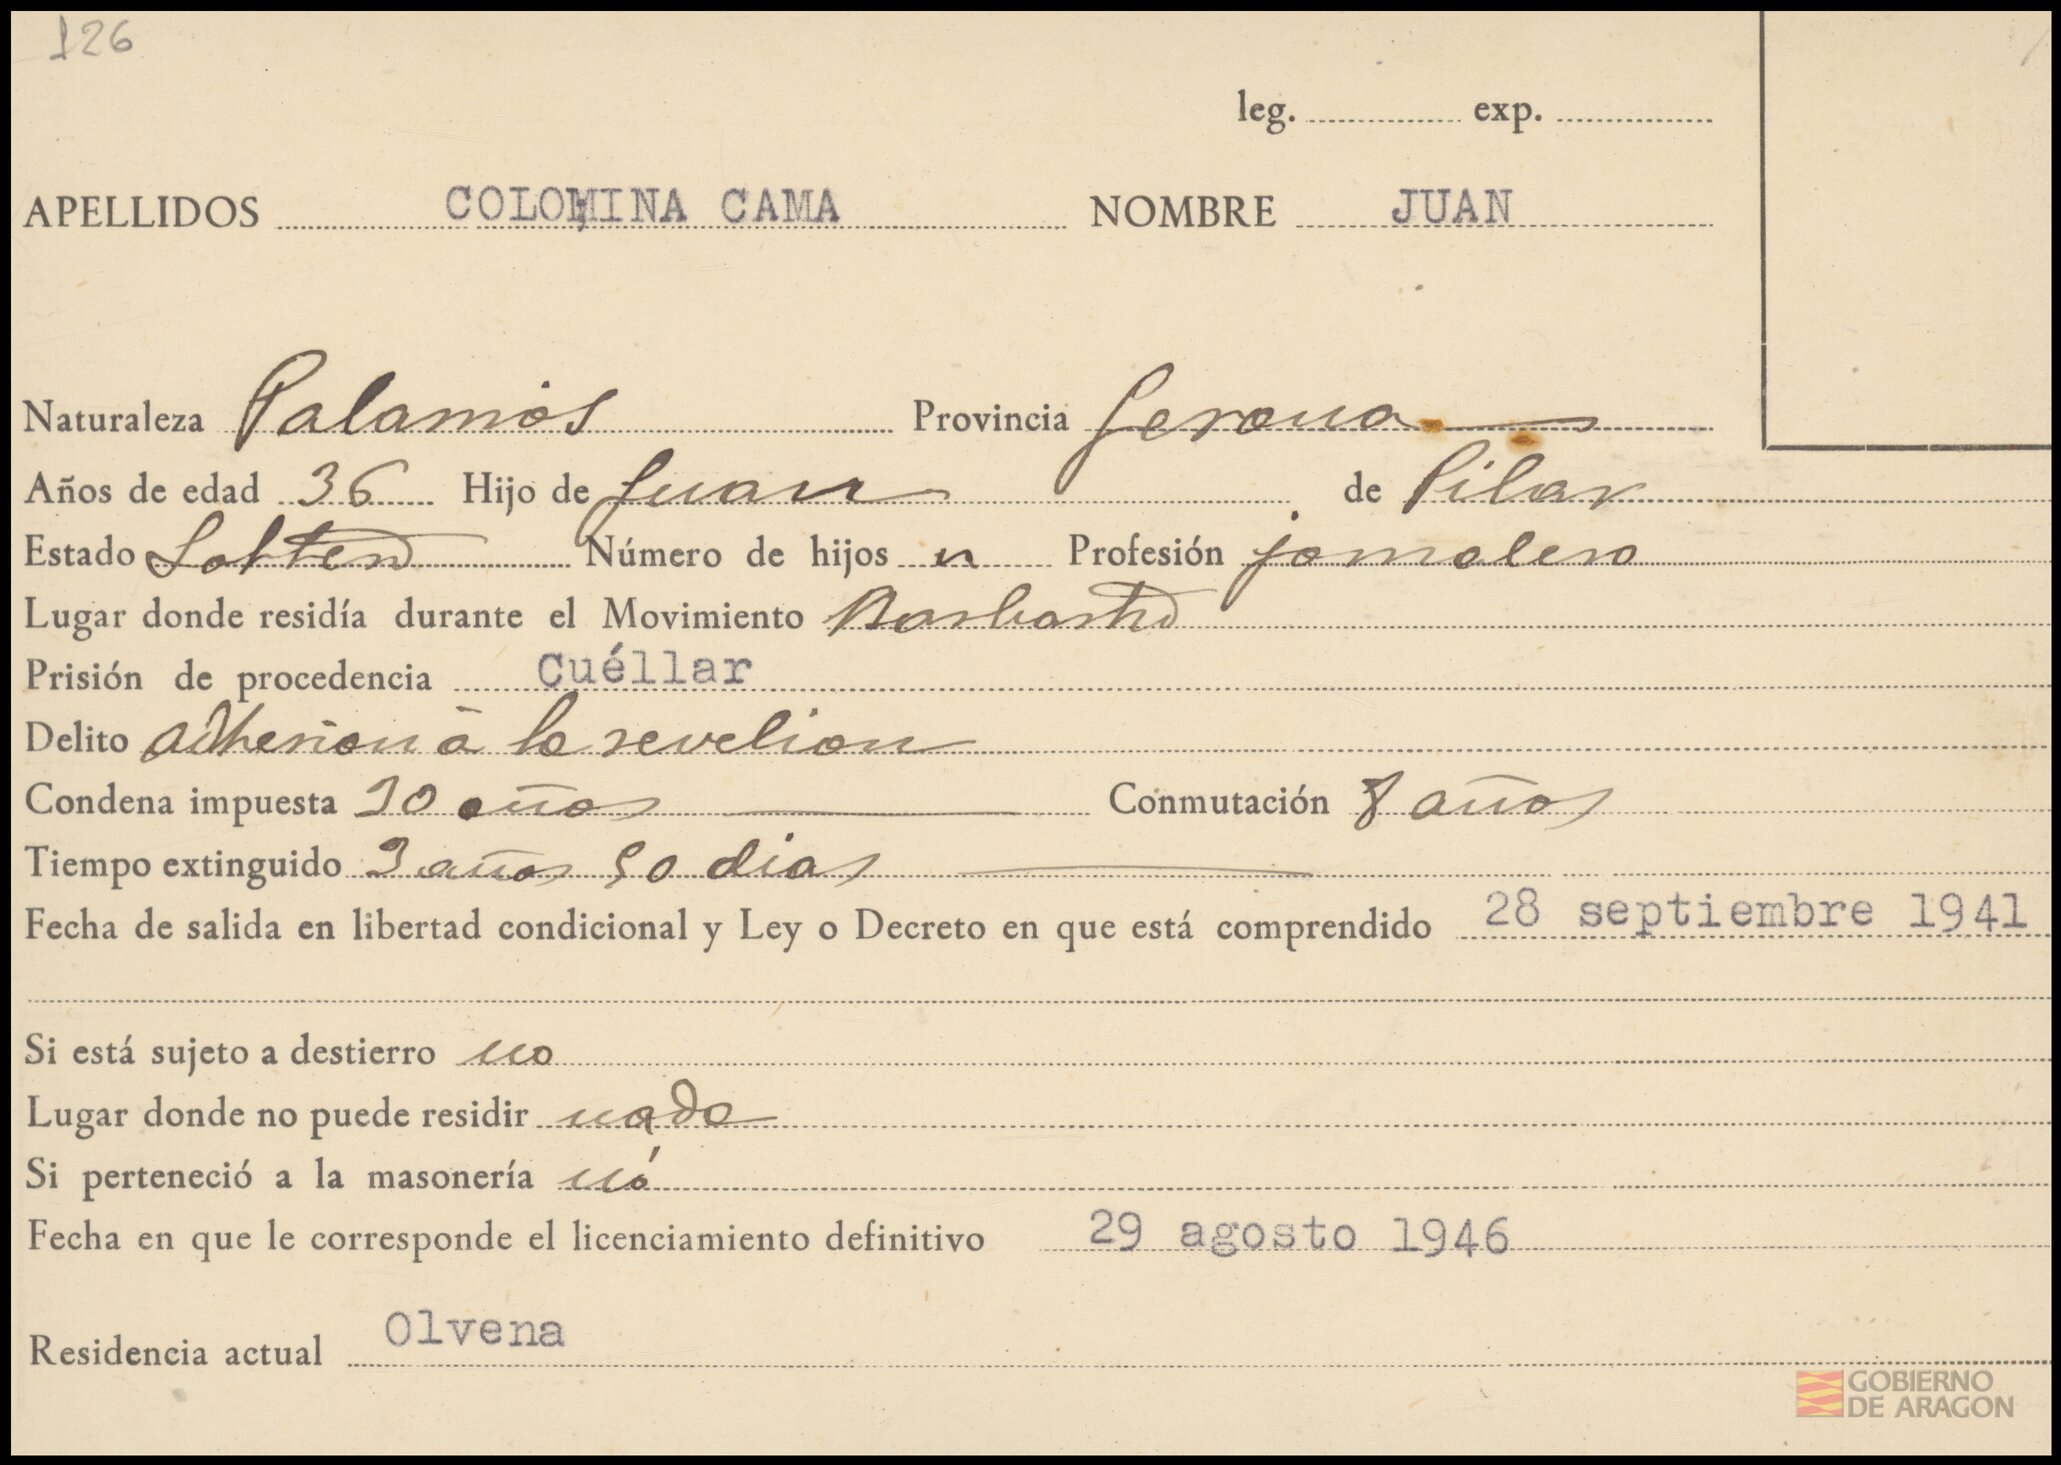 126
leg. exp.
APELLIDOS COLOMINA CAMA NOMBRE JUAN
Naturaleza Palamós Provincia Gerona
Años de edad 36 Hijo de Juan de Pilar
Estado Soltero Número de hijos Profesión jornalero
Lugar donde residía durante el Movimiento Barbastro
Prisión de procedencia Cuéllar
Delito adhesion á la revelion
Condena impuesta 30 años Conmutación 8 años
Tiempo extinguido 3 años 50 dias
Fecha de salida en libertad condicional y Ley o Decreto en que está comprendido 28 septiembre 1941
Si está sujeto a destierro no
Lugar donde no puede residir nada
Si perteneció a la masonería nó
Fecha en que le corresponde el licenciamiento definitivo 29 agosto 1946
Residencia actual Olvena
GOBIERNO
DE ARAGON